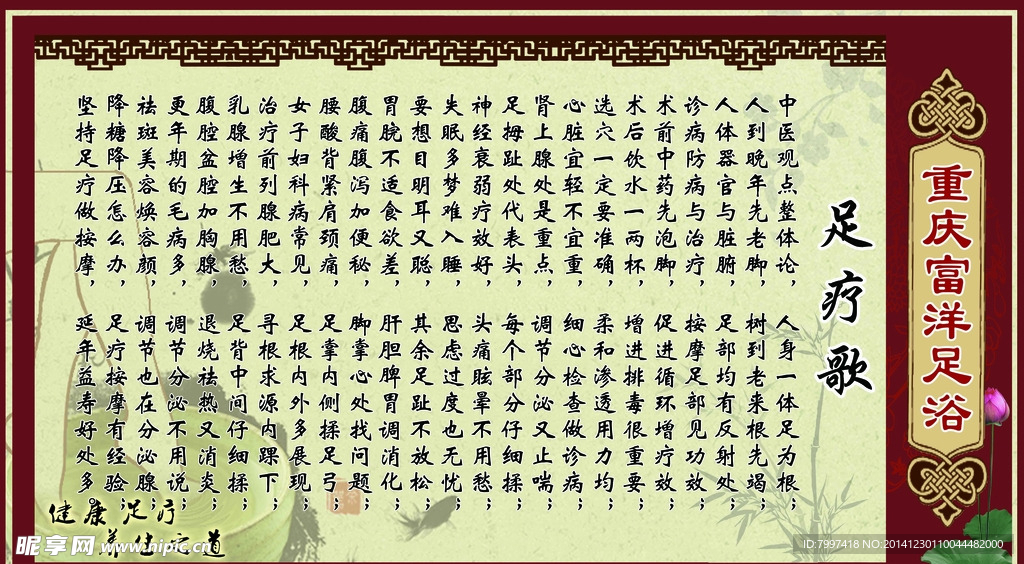 重庆富洋足浴
足疗歌
中医观点整体论，人身一体足为根；
人到晚年先老脚，树到老来根先竭；
人体器官与脏腑，足部均有反射处；
诊病防病与治疗，按摩足部见功效；
术前中药先泡脚，促进循环增疗效；
术后饮水一两杯，增进排毒很重要；
选穴一定要准确，柔和渗透用力均；
心脏宜轻不宜重，细心检查做诊病；
肾上腺处是重点，调节分泌又止喘；
足拇趾处代表头，每个部分仔细揉；
神经衰弱疗效好，头痛眩晕不用愁；
失眠多梦难入睡，思虑过度也无忧；
要想目明耳又聪，其余足趾不放松；
胃脘不适食欲差，肝胆脾胃调消化；
腹痛腹泻加便秘，脚掌心处找问题；
腰酸背紧肩颈痛，足掌内侧揉足弓；
女子妇科病常见，足根内外多展现；
治疗前列腺肥大，寻根求源内踝下；
乳腺增生不用愁，足背中间仔细揉；
腹腔盆腔加胸腺，退烧祛热又消炎；
更年期的毛病多，调节分泌不用说；
祛斑美容焕容颜，调节也在分泌腺；
降糖降压怎么办，足疗按摩有经验；
坚持足疗做按摩，延年益寿好处多。
健康足疗
养生之道
昵享网 www.nipic.cn
ID:7997418 NO:20141230110044482000